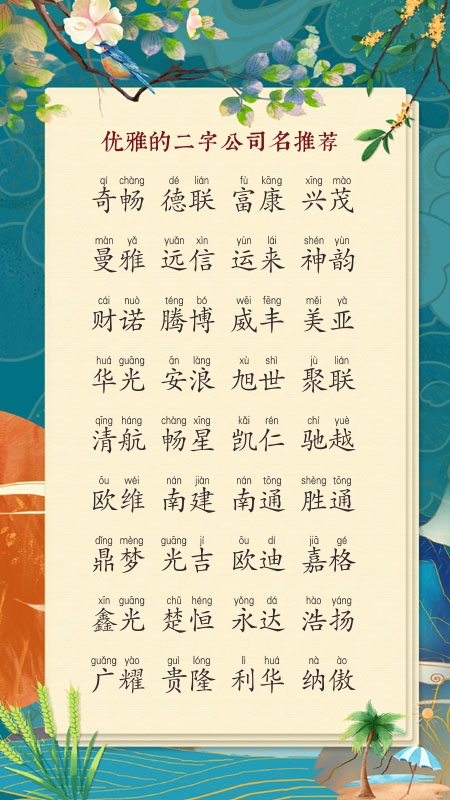 优雅的二字公司名推荐
qí chàng dé lián fù kāng xīng mào
奇畅 德联 富康 兴茂
màn yǎ yuǎn xìn yùn lái shén yùn
曼雅 远信 运来 神韵
cái nuò téng bó wēi fēng měi yà
财诺 腾博 威丰 美亚
huá guāng ān làng xù shì jù lián
华光 安浪 旭世 聚联
qīng háng chàng xīng kǎi rén chí yuè
清航 畅星 凯仁 驰越
ōu wéi nán jiàn nán tōng shèng tōng
欧维 南建 南通 胜通
dǐng mèng guāng jí ōu dí jiā gé
鼎梦 光吉 欧迪 嘉格
xīn guāng chǔ héng yǒng dá hào yáng
鑫光 楚恒 永达 浩扬
guǎng yào guì lóng lì huá nà ào
广耀 贵隆 利华 纳傲